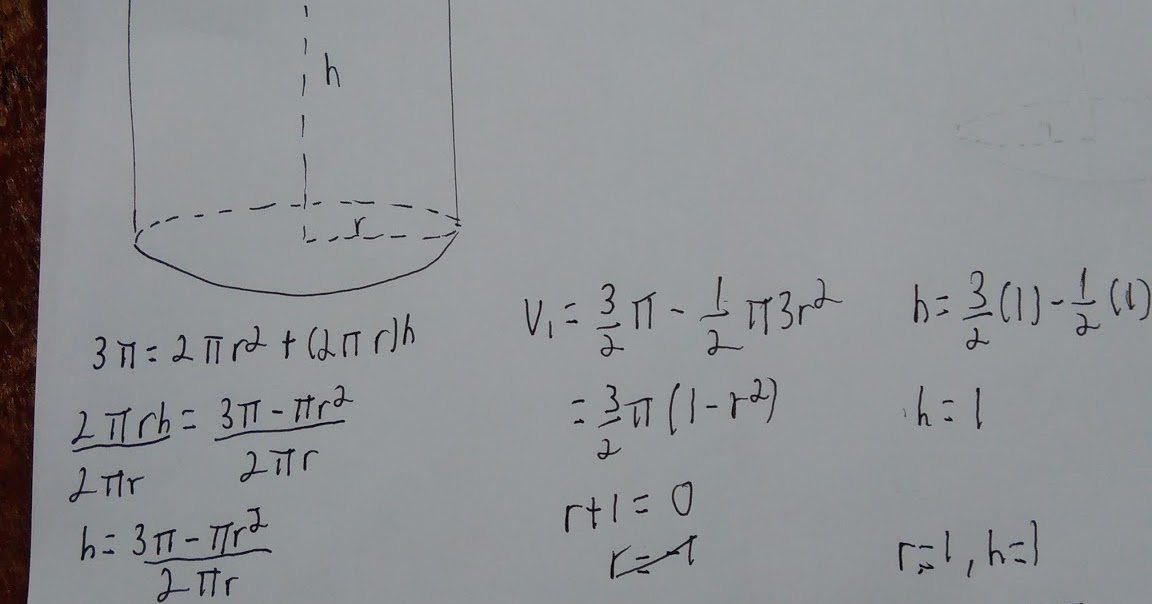 h
r
3π = 2πr² + (2πr)h
2πrh/2πr = (3π - πr²)/2πr
h = (3π - πr²)/2πr
V₁ = 3/2 π - 1/2 π3r²
= 3/2 π (1 - r²)
r + 1 = 0
r = -1
h = 3/2 (1) - 1/2 (1)
h = 1
r = 1, h = 1